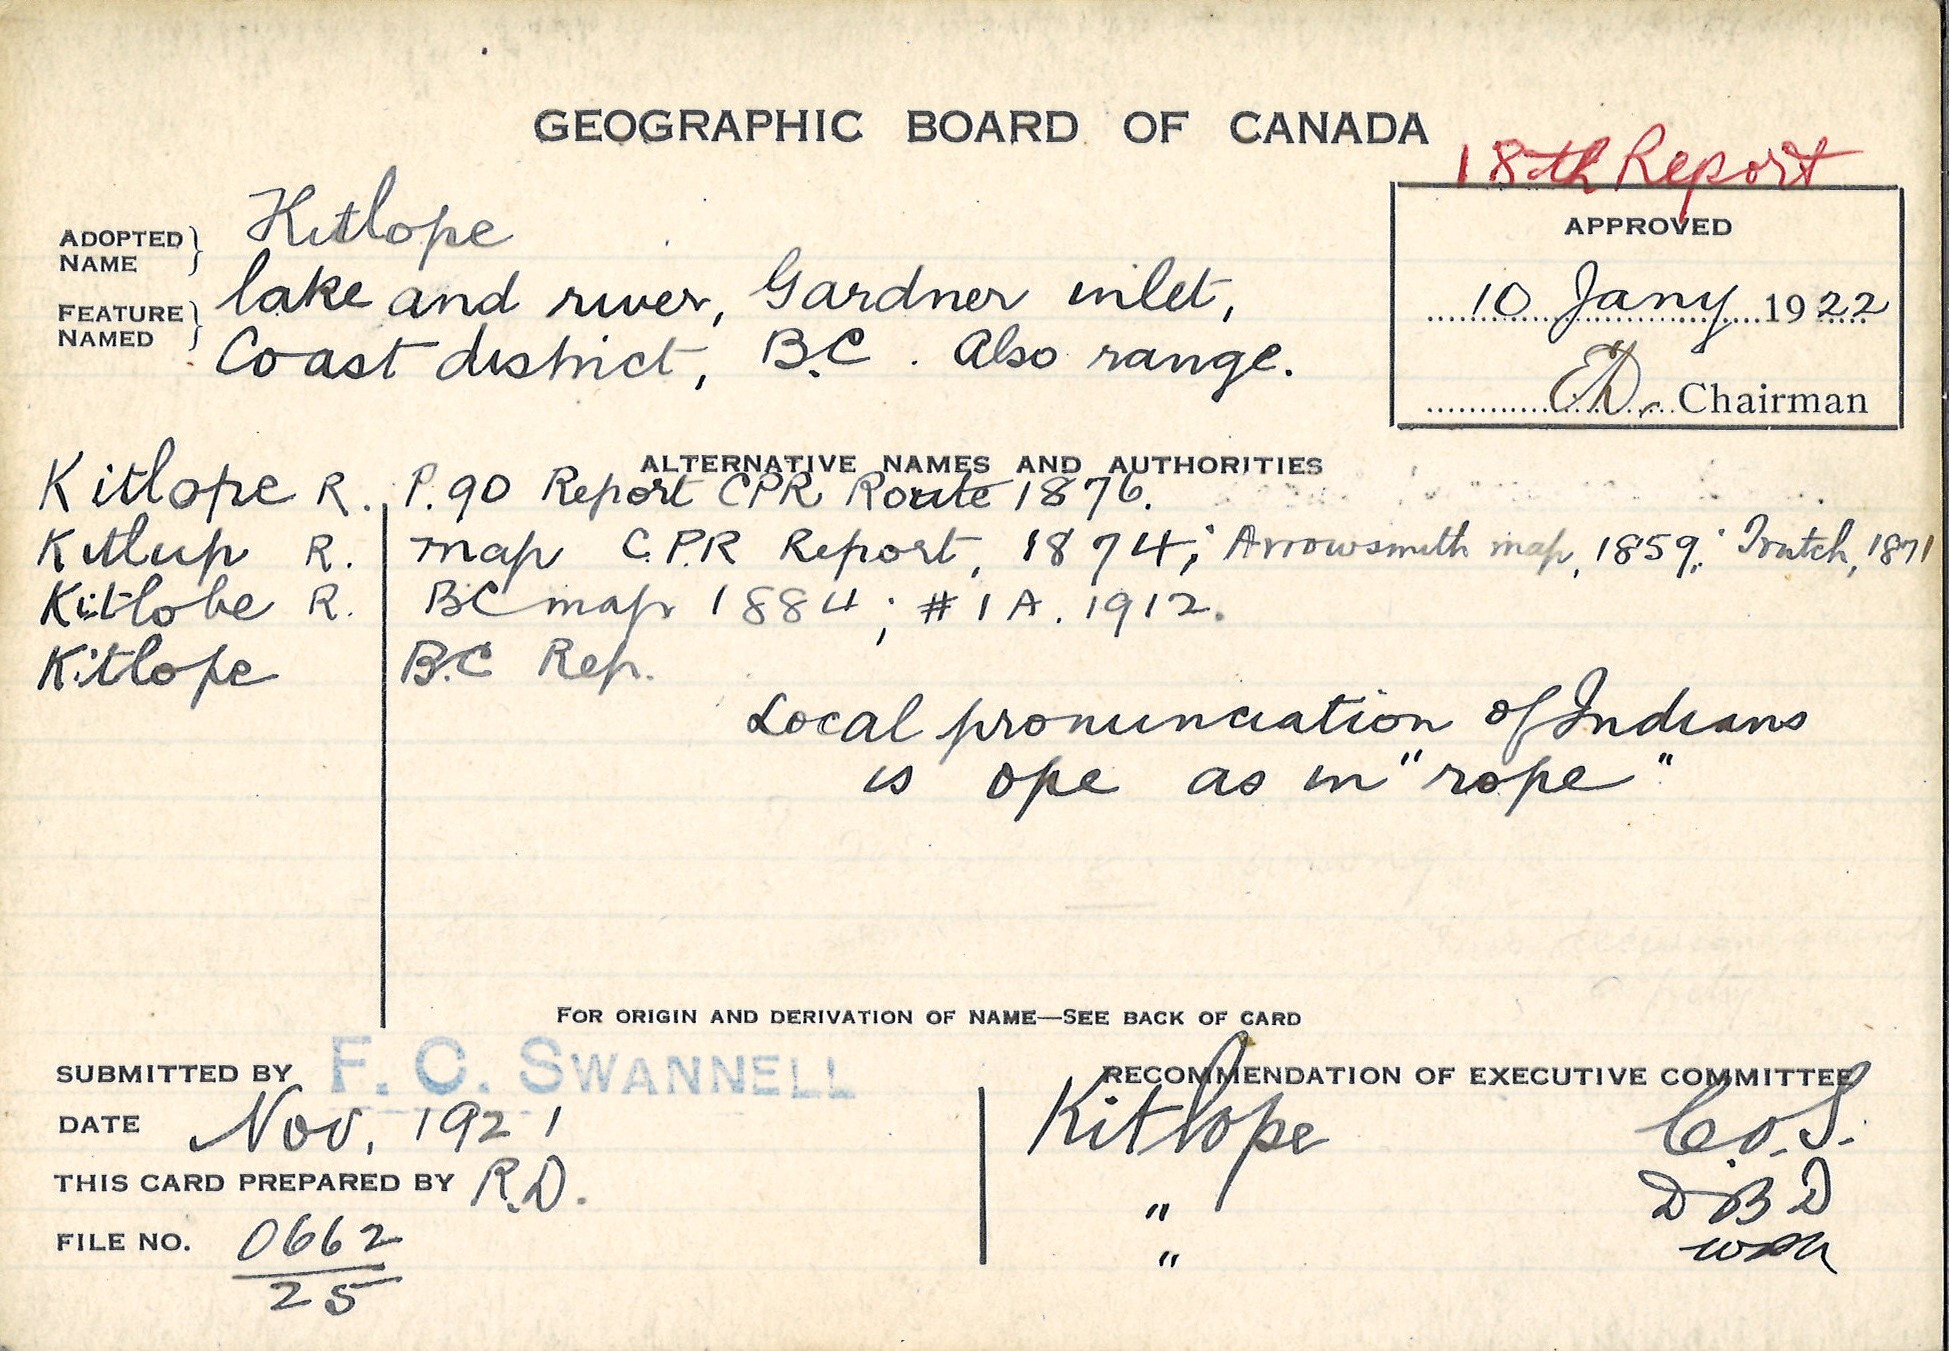 GEOGRAPHIC BOARD OF CANADA
18th Report
ADOPTED NAME } Kitlope
FEATURE NAMED } lake and river, Gardner inlet,
Coast district, B.C. Also range.
APPROVED
10 Jany 1922
Chairman
ALTERNATIVE NAMES AND AUTHORITIES
Kitlope R. P. 90 Report CPR Route 1876.
Kitlup R. map C.P.R Report, 1874; Arrowsmith map, 1859; Trutch, 1871
Kitlobe R. BC map 1884; #1A. 1912.
Kitlope B.C Rep.
Local pronunciation of Indians
is ope as in "rope"
FOR ORIGIN AND DERIVATION OF NAME—SEE BACK OF CARD
SUBMITTED BY F. C. SWANNELL
DATE Nov. 1921
THIS CARD PREPARED BY R.D.
FILE NO. 0662
25
RECOMMENDATION OF EXECUTIVE COMMITTEE
Kitlope C.O.S.
" DBD
"